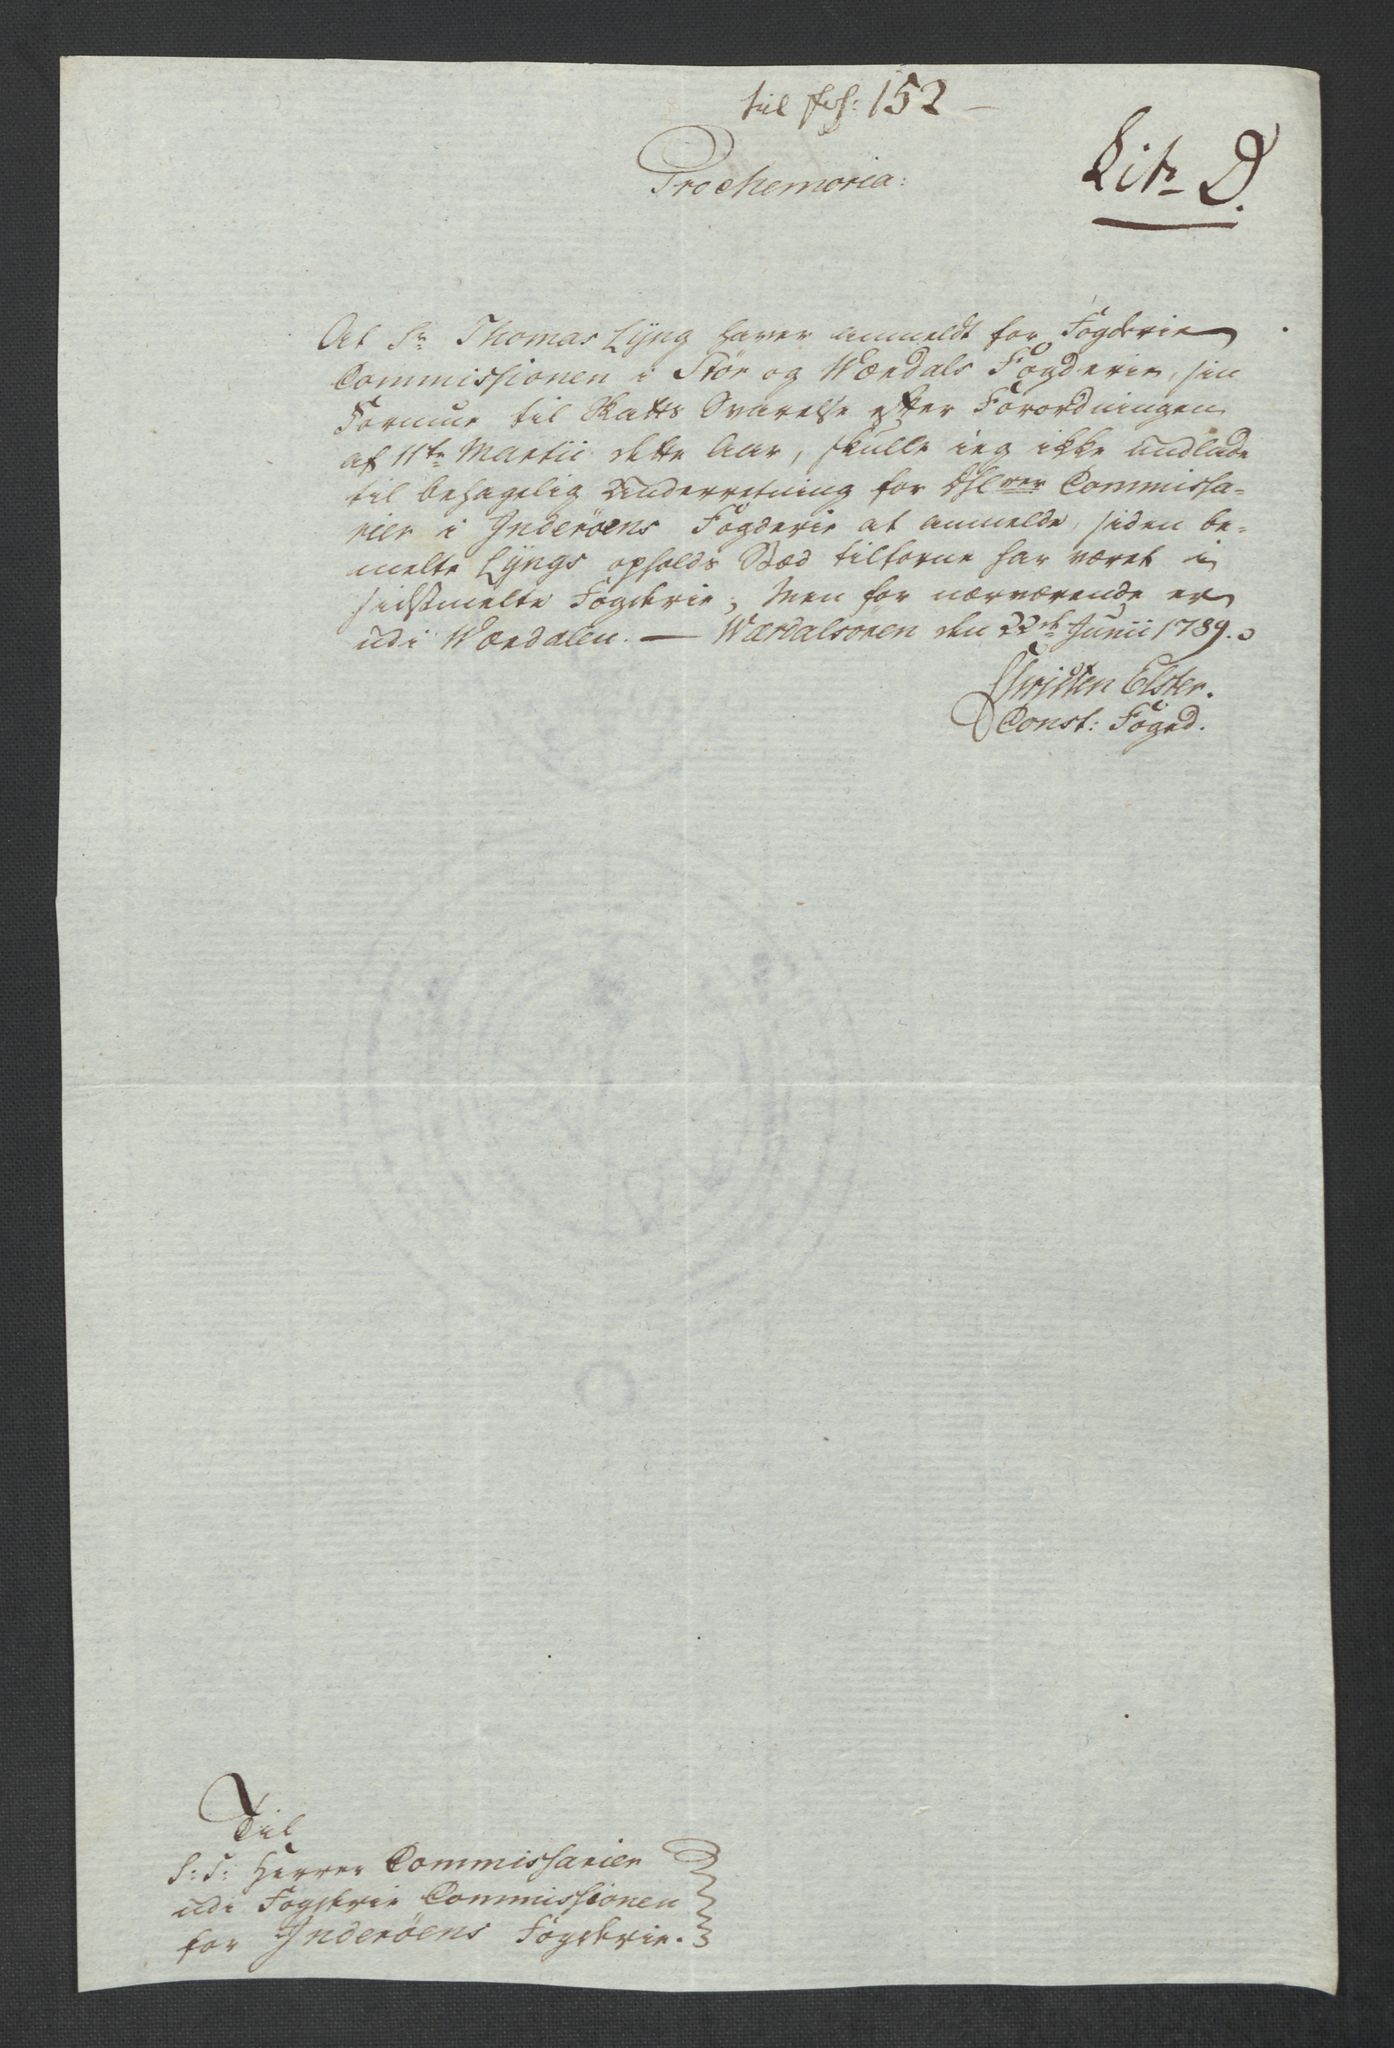 til pag: 152
Litr D.
Promemoria:
At Sr Thomas Lyng haver anmeldt for Fogderie
Commissionen i Stør og Wærdals Fogderie, sin
Formue til Skatts Svarelse efter Forordningen
af 11te Martii dette Aar, skulle ieg ikke undlade
til behagelig Underretning for Commissa-
rier i Inderöens Fogderie at anmelde, siden be-
melte Lyngs opholds Stæd tilforne har været i
sidstmelte Fogderie, Men for nærværende er
udi Wærdalen. — Wærdalsøren den 22de Junii 1789.
Christen Elster.
Const: Foged.
Til
S: T: Herrer Commissarier
udi Fogderie Commissionen
for Inderöens Fogderie.